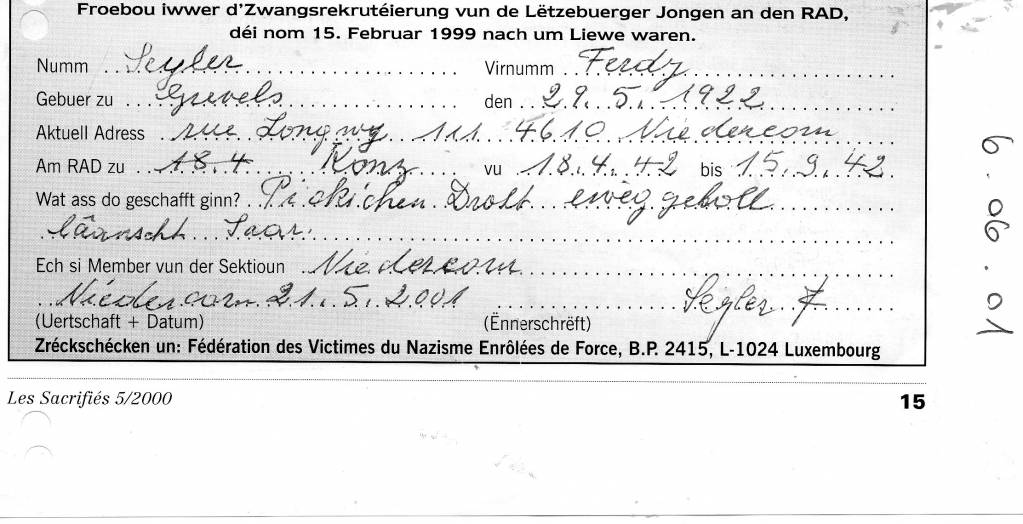 Froebou iwwer d'Zwangsrekrutéierung vun de Lëtzebuerger Jongen an den RAD,
déi nom 15. Februar 1999 nach um Liewe waren.
Numm Segler Virnumm Ferdy
Gebuer zu Grevels den 29.5.1922
Aktuell Adress rue Longwy 111 4610 Niedercorn
Am RAD zu 18.4 Konz vu 18.4.42 bis 15.9.42
Wat ass do geschafft ginn? Pickichen Drott eweg geholl
läanscht Saar.
Ech si Member vun der Sektioun Niedercorn
Niedercorn 21.5.2001 Segler F
(Uertschaft + Datum) (Ënnerschrëft)
Zréckschécken un: Fédération des Victimes du Nazisme Enrôlées de Force, B.P. 2415, L-1024 Luxembourg
Les Sacrifiés 5/2000 15
6.06.01